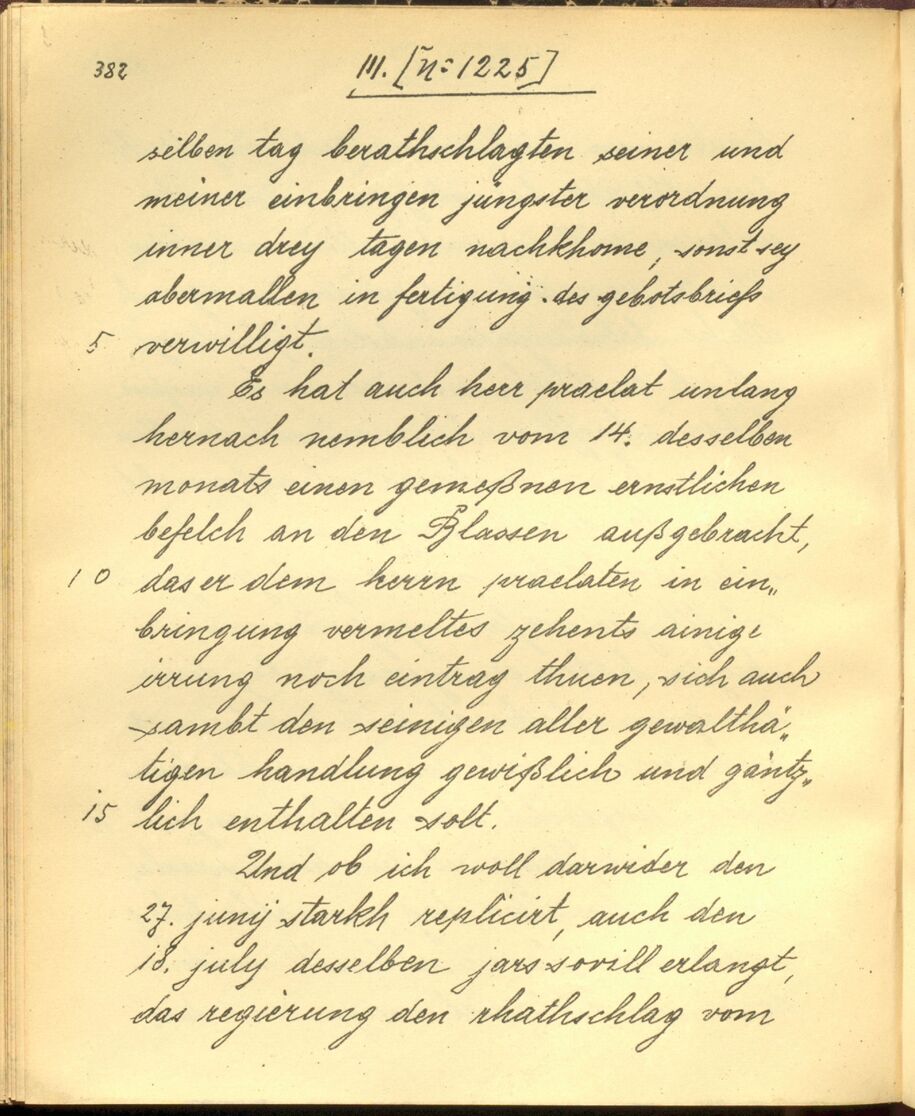 382
III. [n=1225]
selben tag berathschlagten seiner und
meiner einbringen jüngster verordnung
inner drey tagen nachkhome, sonst sey
abermallen in fertigung des gebotsbriefs
5 verwilligt.
Es hat auch herr praelat unlang
hernach nemblich vom 14. desselben
monats einen gemeßnen ernstlichen
befelch an den Blassen außgebracht,
10 das er dem herrn praelaten in ein„
bringung vermeltes zehents ainige
irrung noch eintrag thuen, sich auch
sambt den seinigen aller gewalthä„
tigen handlung gewißlich und gäntz„
15 lich enthalten solt.
Und ob ich woll darwider den
27. junij starkh replicirt, auch den
18. july desselben jars sovill erlangt,
das regierung den rhathschlag vom